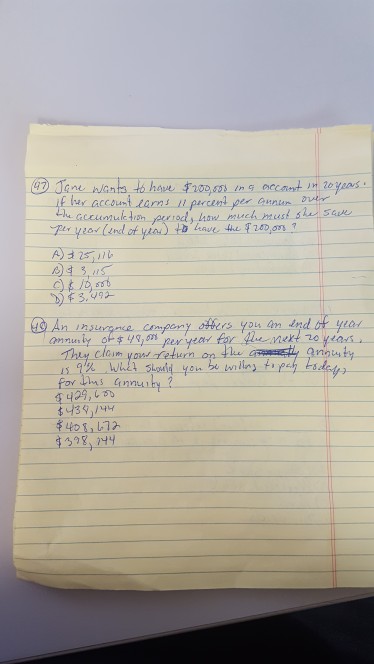 47) Jane wants to have $200,000 in a account in 20 years.
If her account earns 11 percent per annum over
the accumulation period, how much must she save
per year (end of year) to have the $200,000?
A) $25,116
B) $3,115
C) $10,000
D) $3,492
48) An insurance company offers you an end of year
annuity of $48,000 per year for the next 20 years.
They claim your return on the annuity
is 9%. What should you be willing to pay today,
for this annuity?
$429,600
$439,144
$408,672
$398,144